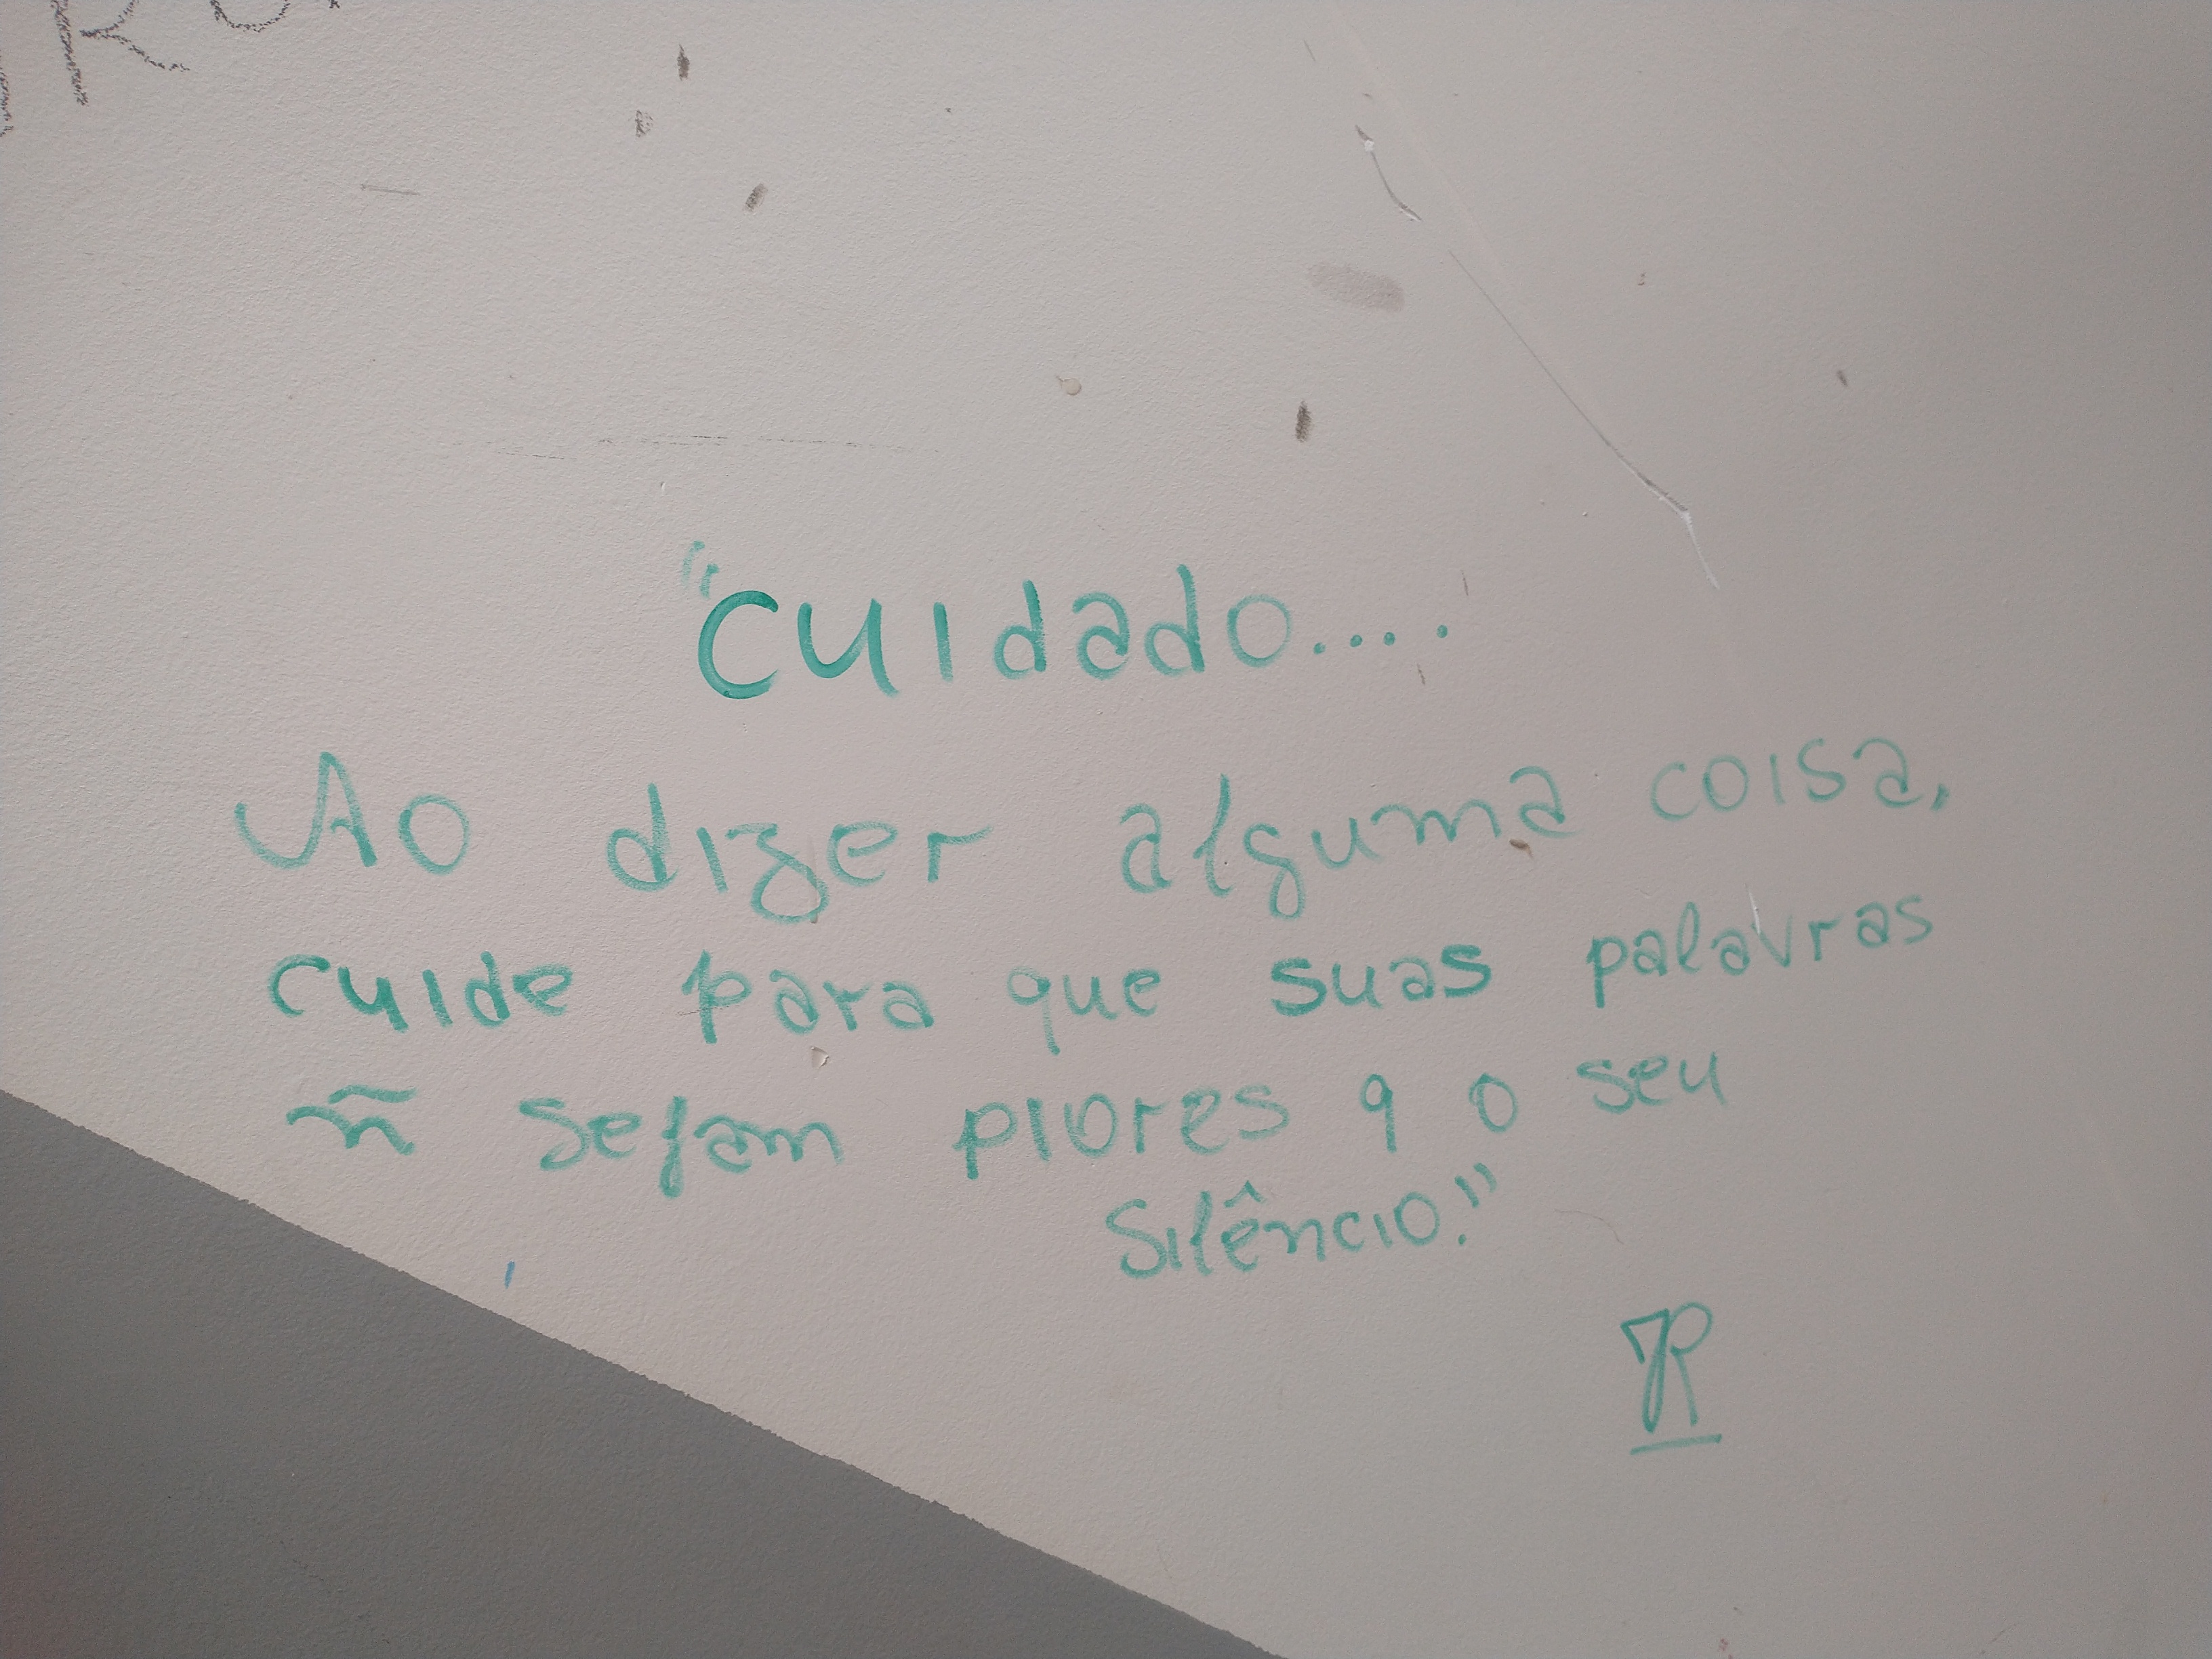 "Cuidado....
Ao dizer alguma coisa,
cuide para que suas palavras
ñ sejam piores q o seu
Silêncio."
JR